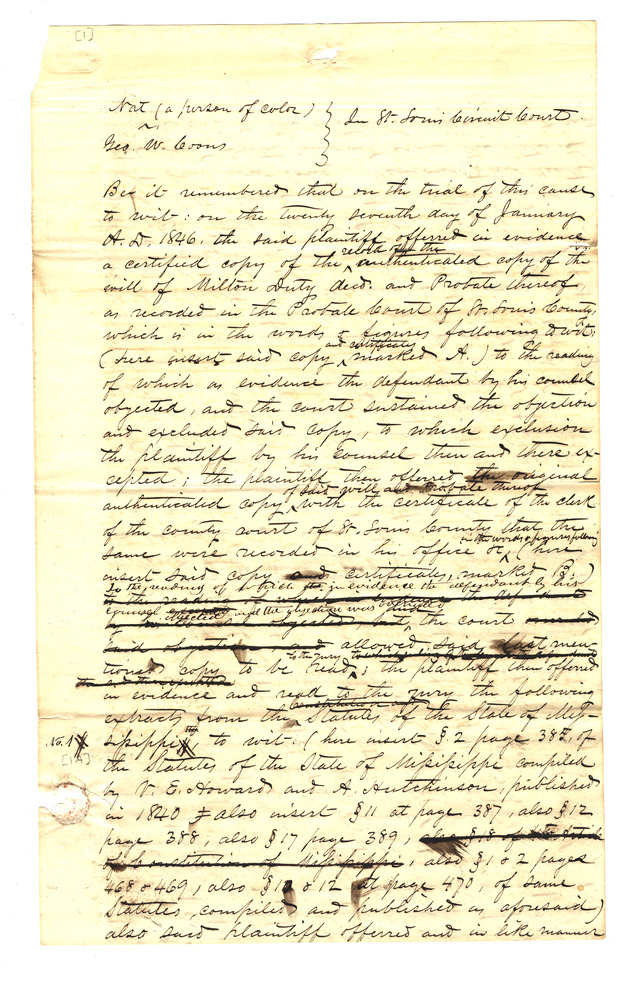 [1]
Nat (a person of color)
In St. Louis Circuit Court.
Geo. W. Coons
Bee it remembered that on the trial of this cause
to wit: on the twenty seventh day of January
A.D. 1846. the said plaintiff offerred in evidence
record of the
a certified copy of the authenticated copy of the
will of Milton Duty decd. and Probate thereof
as recorded in the Probate Court of St. Louis County,
which is in the words & figures following to wit:
and certificates
(here insert said copy marked A.) to the reading
of which as evidence the defendant by his counsel
objected, and the court sustained the objection
and excluded said copy, to which exclusion
the plaintiff by his Counsel then and there ex-
cepted; the plaintiff then offerred the original
of said will and Probate thereof
authenticated copy with the certificate of the clerk
of the county court of St. Louis County that the
in the words & figures following
same were recorded in his office (here
insert said copy and certificates, marked B.)
to the reading of which in evidence the defendant by his
counsel objected and the objection was overruled
objected, but the court
said objection and allowed said last men-
to the jury
tioned copy to be read; the plaintiff then offerred
in evidence and read to the jury the following
Constitution and
extracts from the Statutes of the State of Mis-
No. 1
sissippi, to wit: (here insert § 2 page 387, of
[1]
the Statutes of the State of Mississippi compiled
by V. E. Howard and A. Hutchinson, published
in 1840 also insert § 11 at page 387, also § 12
page 388, also § 17 page 389, also § 18 of the Article
of Constitution of Mississippi, also § 1 & 2 pages
468 & 469, also § 11 & 12 at page 470, of same
Statutes compiled and published as aforesaid)
also said plaintiff offerred and in like manner